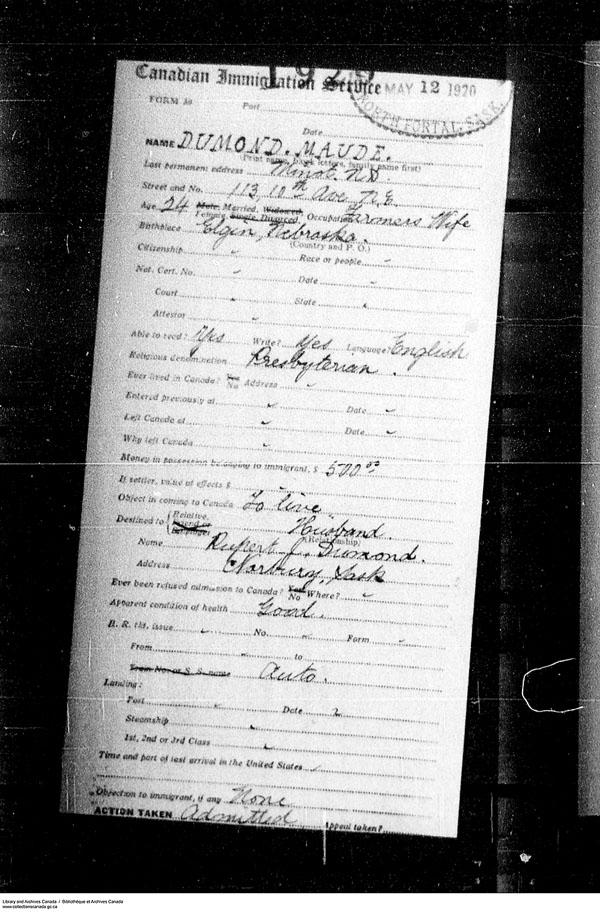 Canadian Immigration Service
MAY 12 1920
NORTH PORTAL, SASK.
FORM 30 Port
Date
NAME DUMOND. MAUDE.
(Print name, block letters, family name first)
Last permanent address Minot. N.D.
Street and No. 113, 10th Ave N.E.
Age 24 Male, Married, Widowed, Female, Single, Divorced, Occupation Farmers Wife
Birthplace Elgin, Nebraska.
(Country and P. O.)
Citizenship Race or people
Nat. Cert. No. Date
Court State
Attestor
Able to read? Yes Write? Yes Language? English
Religious denomination Presbyterian.
Ever lived in Canada? Yes No Address
Entered previously at Date
Left Canada at Date
Why left Canada
Money in possession belonging to immigrant, $ 500.00
If settler, value of effects $
Object in coming to Canada To live
Destined to Relative, Friend or Husband.
(Relationship)
Name Rupert J. Dumond.
Address Sask
Ever been refused admission to Canada? Yes No Where?
Apparent condition of health Good.
B. R. tkt. issue No. Form
From to
Train No. or S. S. name Auto.
Landing:
Port Date
Steamship
1st, 2nd or 3rd Class
Time and port of last arrival in the United States
Objection to immigrant, if any None
ACTION TAKEN Admitted Appeal taken?
Library and Archives Canada / Bibliothèque et Archives Canada
www.collectionscanada.gc.ca